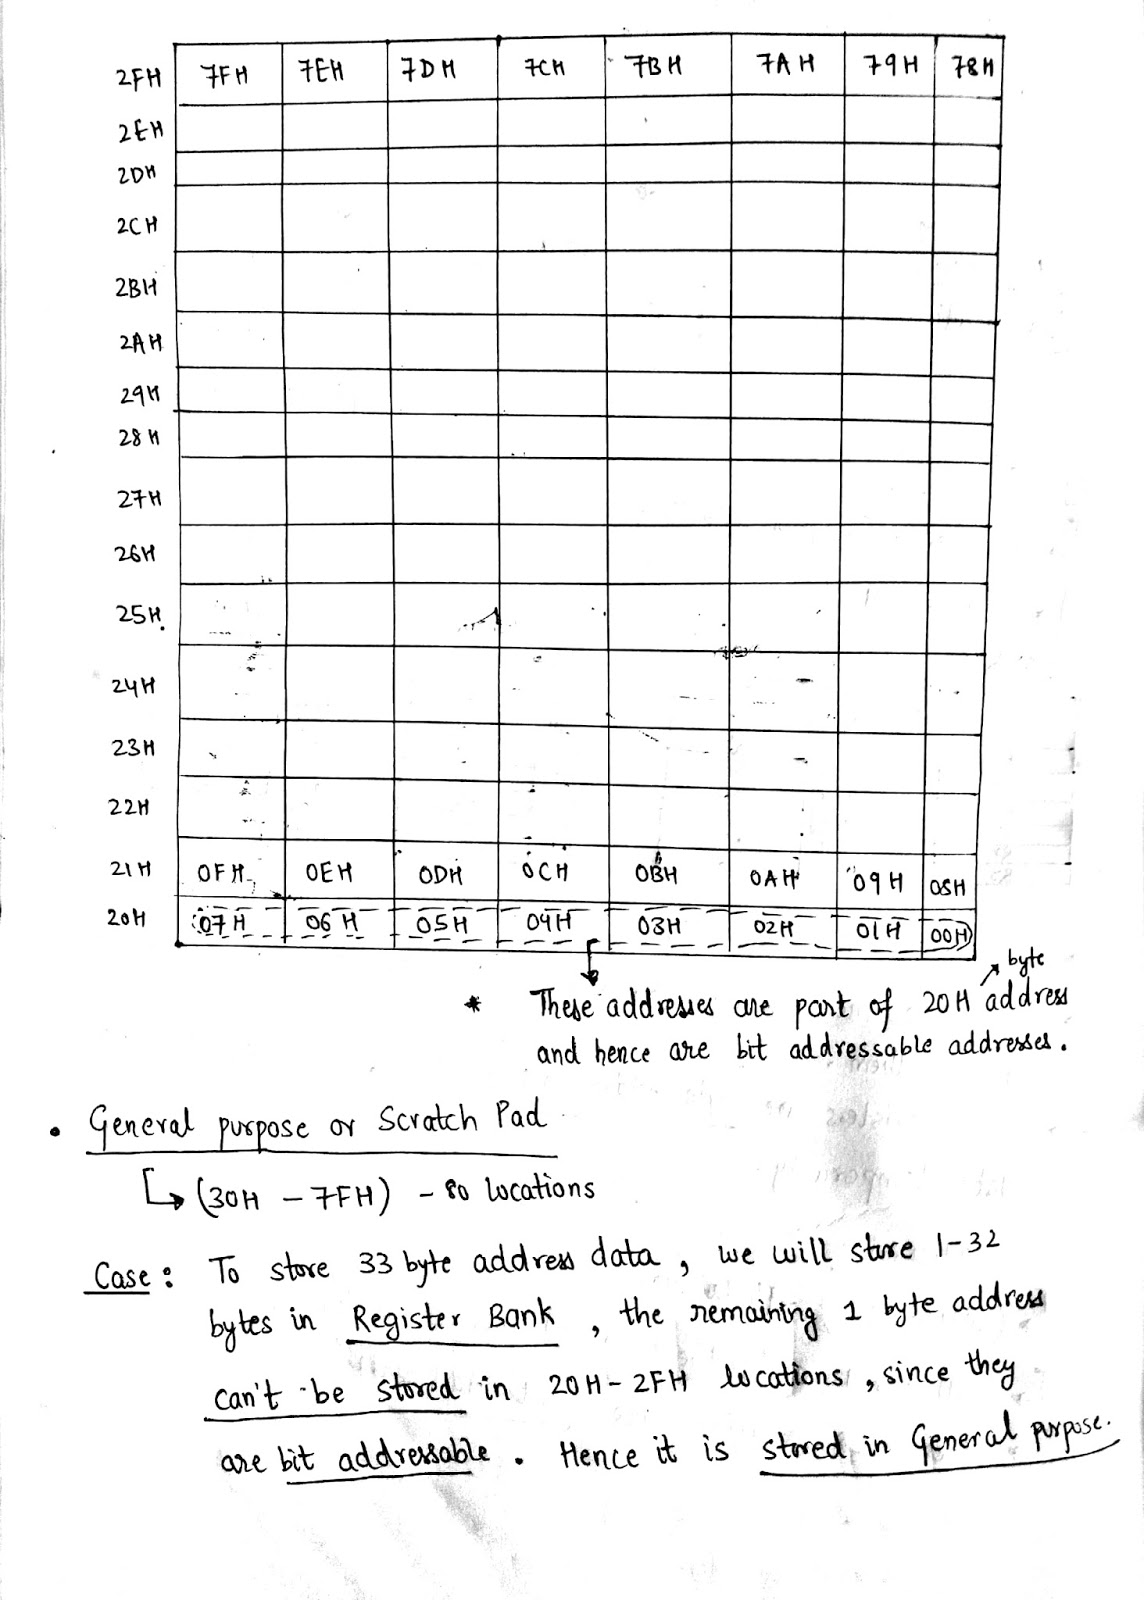 2FH 7FH 7EH 7DH 7CH 7BH 7AH 79H 78H
2EH
2DH
2CH
2BH
2AH
29H
28H
27H
26H
25H.
24H
23H
22H
21H 0FH 0EH 0DH 0CH 0BH 0AH 09H 08H
20H 07H 06H 05H 04H 03H 02H 01H 00H
byte
* These addresses are part of 20H address
and hence are bit addressable addresses.
• General purpose or Scratch Pad
(30H - 7FH) - 80 locations
Case: To store 33 byte address data, we will store 1-32
bytes in Register Bank, the remaining 1 byte address
can't be stored in 20H-2FH locations, since they
are bit addressable. Hence it is stored in General purpose.